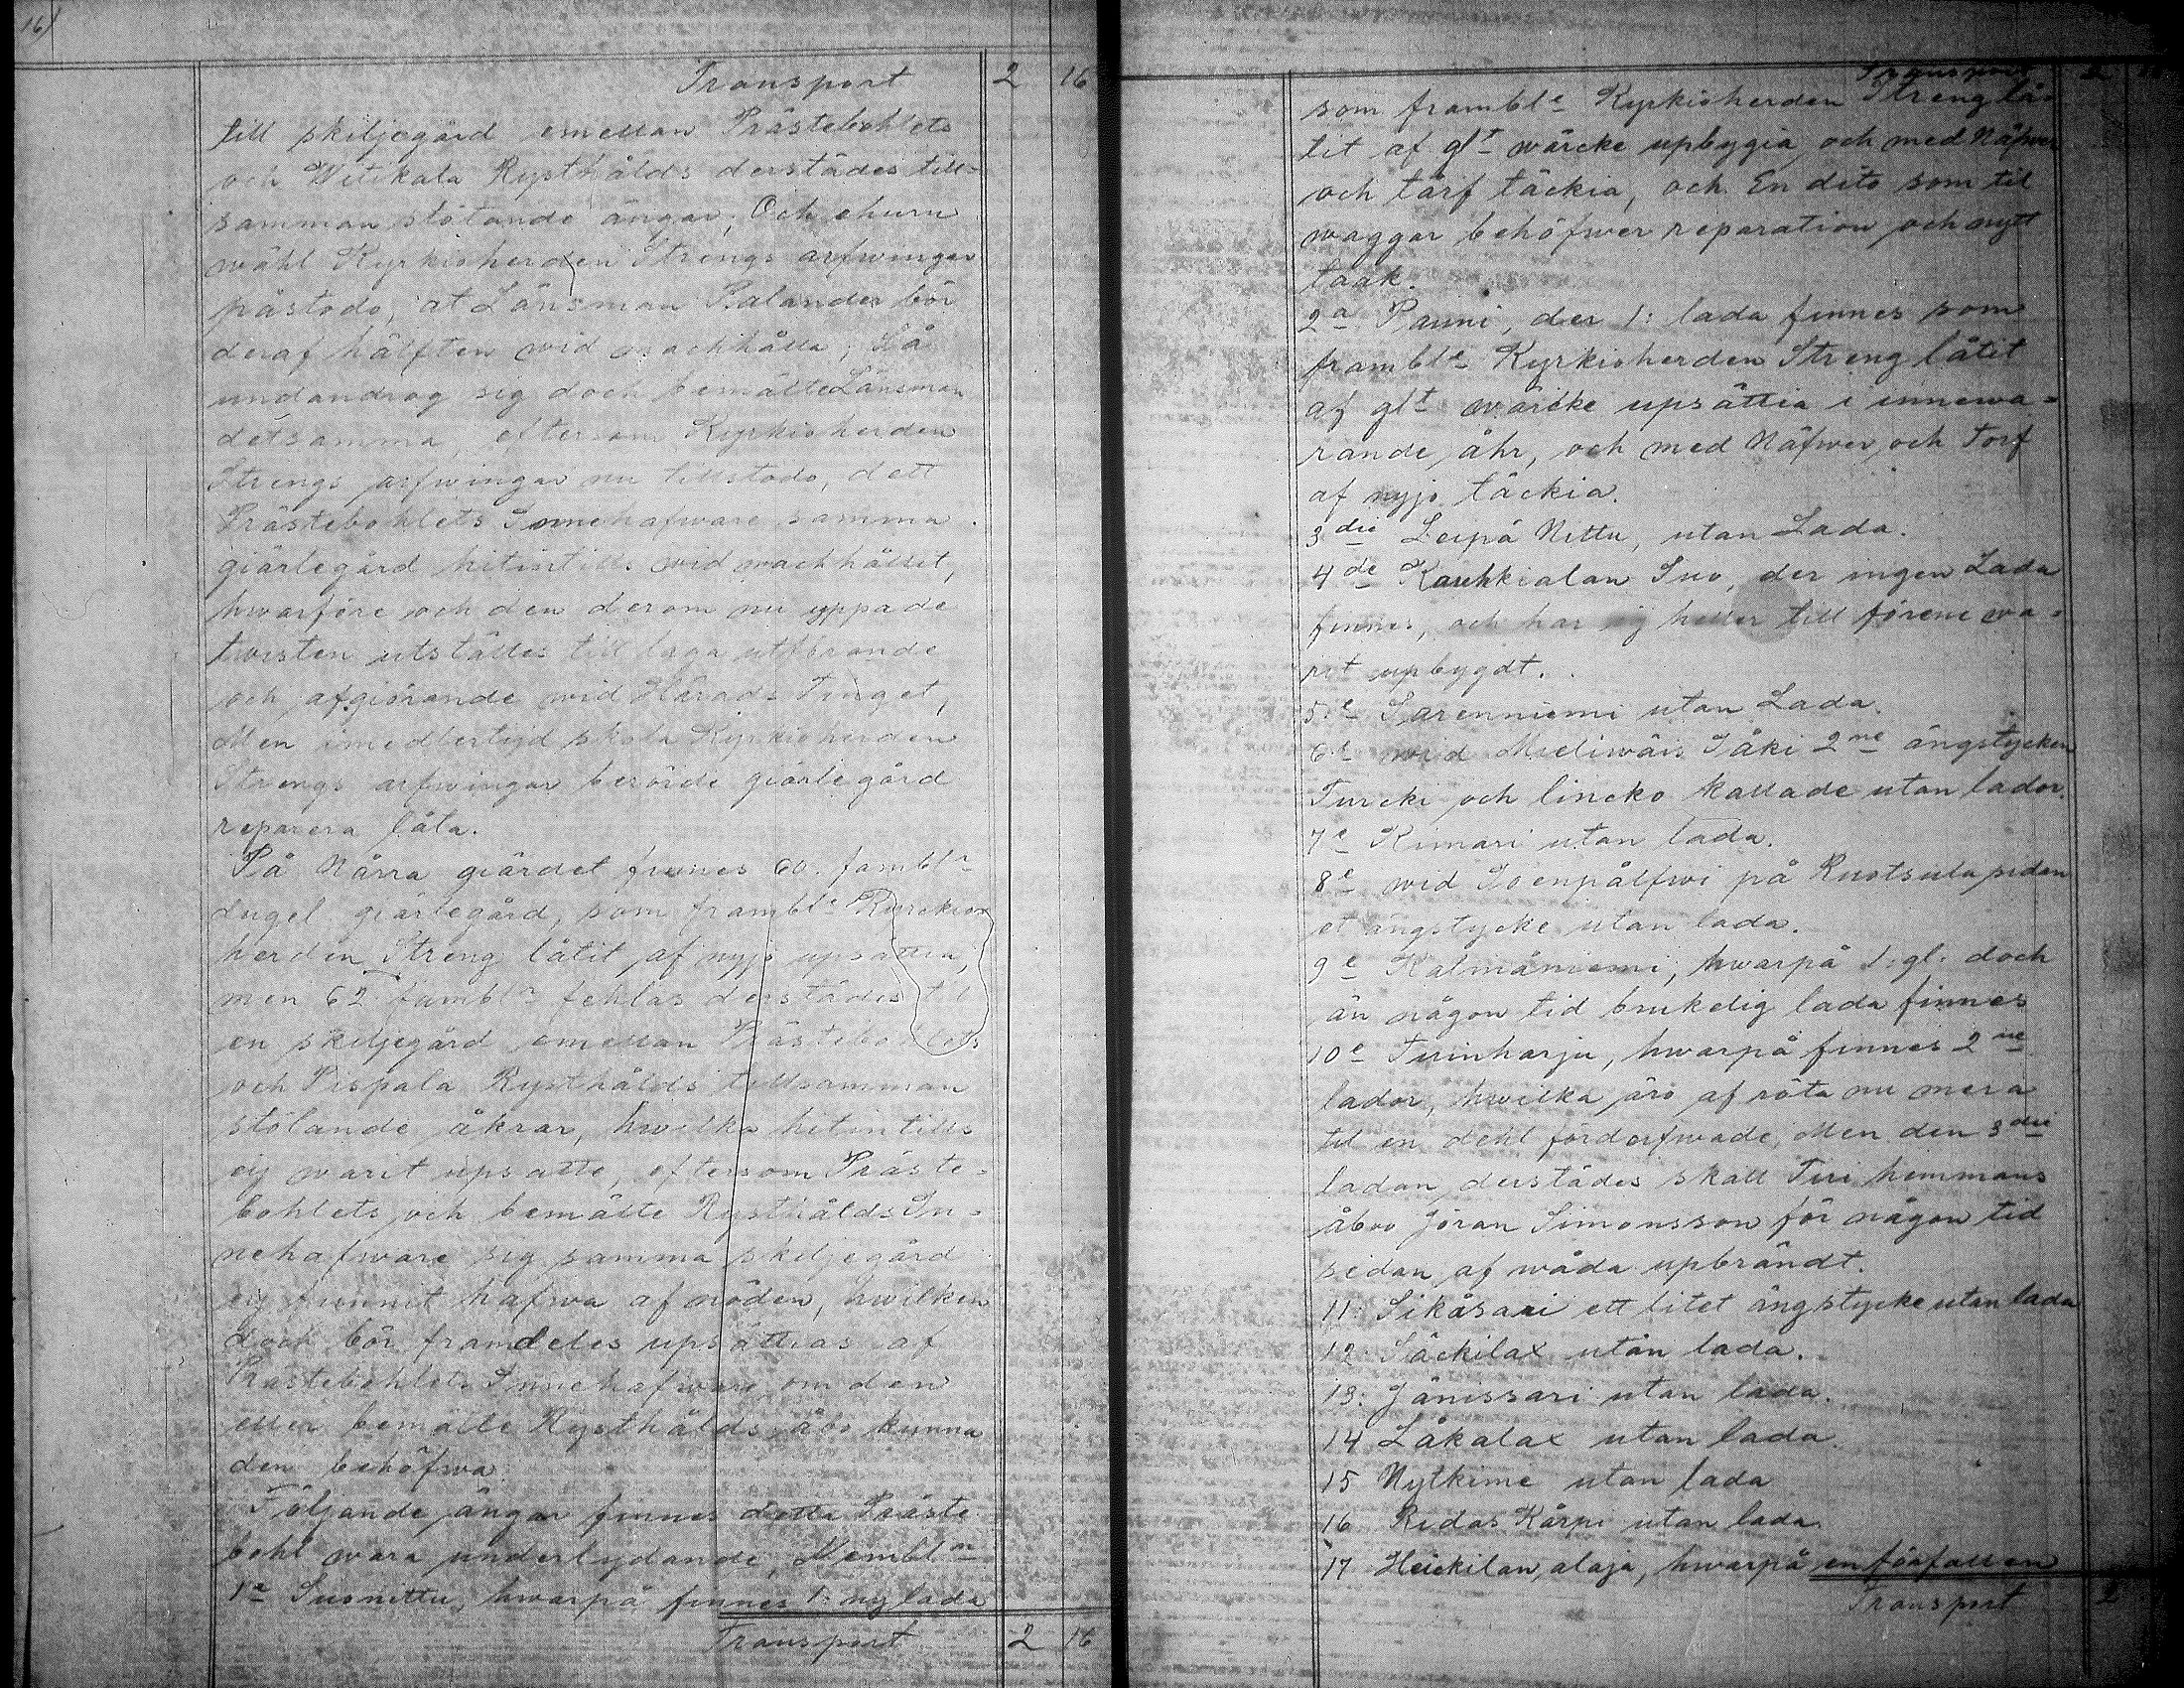 16)
Transport 2 16
till skiljegård emellan Prästebohlets
och Witikala Rysthålds derstädes till-
samman stötande ängar, Och ehuru
wähl Kyrkioherden Strengs arfwingar
påstodo, at Länsman Palander bör
deraf hälften wid macht hålla, Så
undandrog sig doch bemälte Länsman
det samma, eftersom Kyrkioherden
Strengs arfwingar nu tillstodo, dett
Prästebohlets Innehafware samma
giärlegård hitintills wid macht hållit,
hwarföre och den derom nu yppade
twisten utställes till laga utförande
och afgiörande wid Härads Tinget,
Men imedlertijd skola Kyrkioherden
Strengs arfwingar berörde giärlegård
reparera låta.
På Norra giärdet finnes 60. fambl.r
dugel giärlegård, som frambl.e Kyrckio
herden Streng låtit af nyjo upsättia,
men 62 fambl.r fehlas derstädes til
en skiljegård emellan Prästebohlets
och Pispala Rysthålds tillsamman
stötande åkrar, hwilka hitintills
eij warit upsatte, eftersom Präste-
bohlets och bemälte Rysthålds In-
nehafware sig samma skiljegård
eij funnit hafwa af nöden, hwilken
doch bör framdeles upsättias af
Prästebohlets Innehafware, om den
eller bemälte Rysthålds åbo kunna
den behöfwa.
Följande ängar finnes detta Präste
bohl wara underlydande, Nembl.n
1a Suonittu, hwarpå finnes 1: ny lada
Transport 2 16
Transport 2
som frambl.e Kyrkioherden Streng lå-
tit af gl.t wärcke upbygia och med Näfwer
och tårf täckia, och En dito som til
waggar behöfwer reparation och nytt
taak.
2a Pauni, der 1: lada finnes som
frambl.e Kyrkioherden Streng låtit
af gl.t wärcke upsättia i innewa-
rande åhr, och med Näfwer och Torf
af nyjo täckia.
3die Leipä Nittu, utan Lada.
4de Kauhkialan Suo, der ingen Lada
finnes, och har eij heller till förene wa-
rit upbygdt.
5te Sarenniemi utan Lada.
6te wid Mieliwäis Jåki 2ne ängstycken
Turcki och lincko kallade utan lador.
7e Kimari utan lada.
8e wid Isenpälfwi på Ruotsula sidan
et ängstycke utan lada.
9e Kalmäniemi, hwarpå 1: gl. doch
än någon tid brukelig lada finnes
10e Tuinharju, hwarpå finnes 2ne
lador, hwilka äro af röta nu mera
til en dehl förderfwade, Men den 3die
ladan derstädes skall Turi hemmans
åboo Jöran Simonsson för någon tid
sedan af wåda upbrändt.
11. Sikäsaari ett litet ängstycke utan lada
12. Säckilax utan lada.
13. Jänissari utan lada.
14 Låkalax utan lada.
15 Nytkime utan lada
16 Ridas Kårpi utan lada.
17 Heickilan, alaja, hwarpå en förfallen
Transport 2